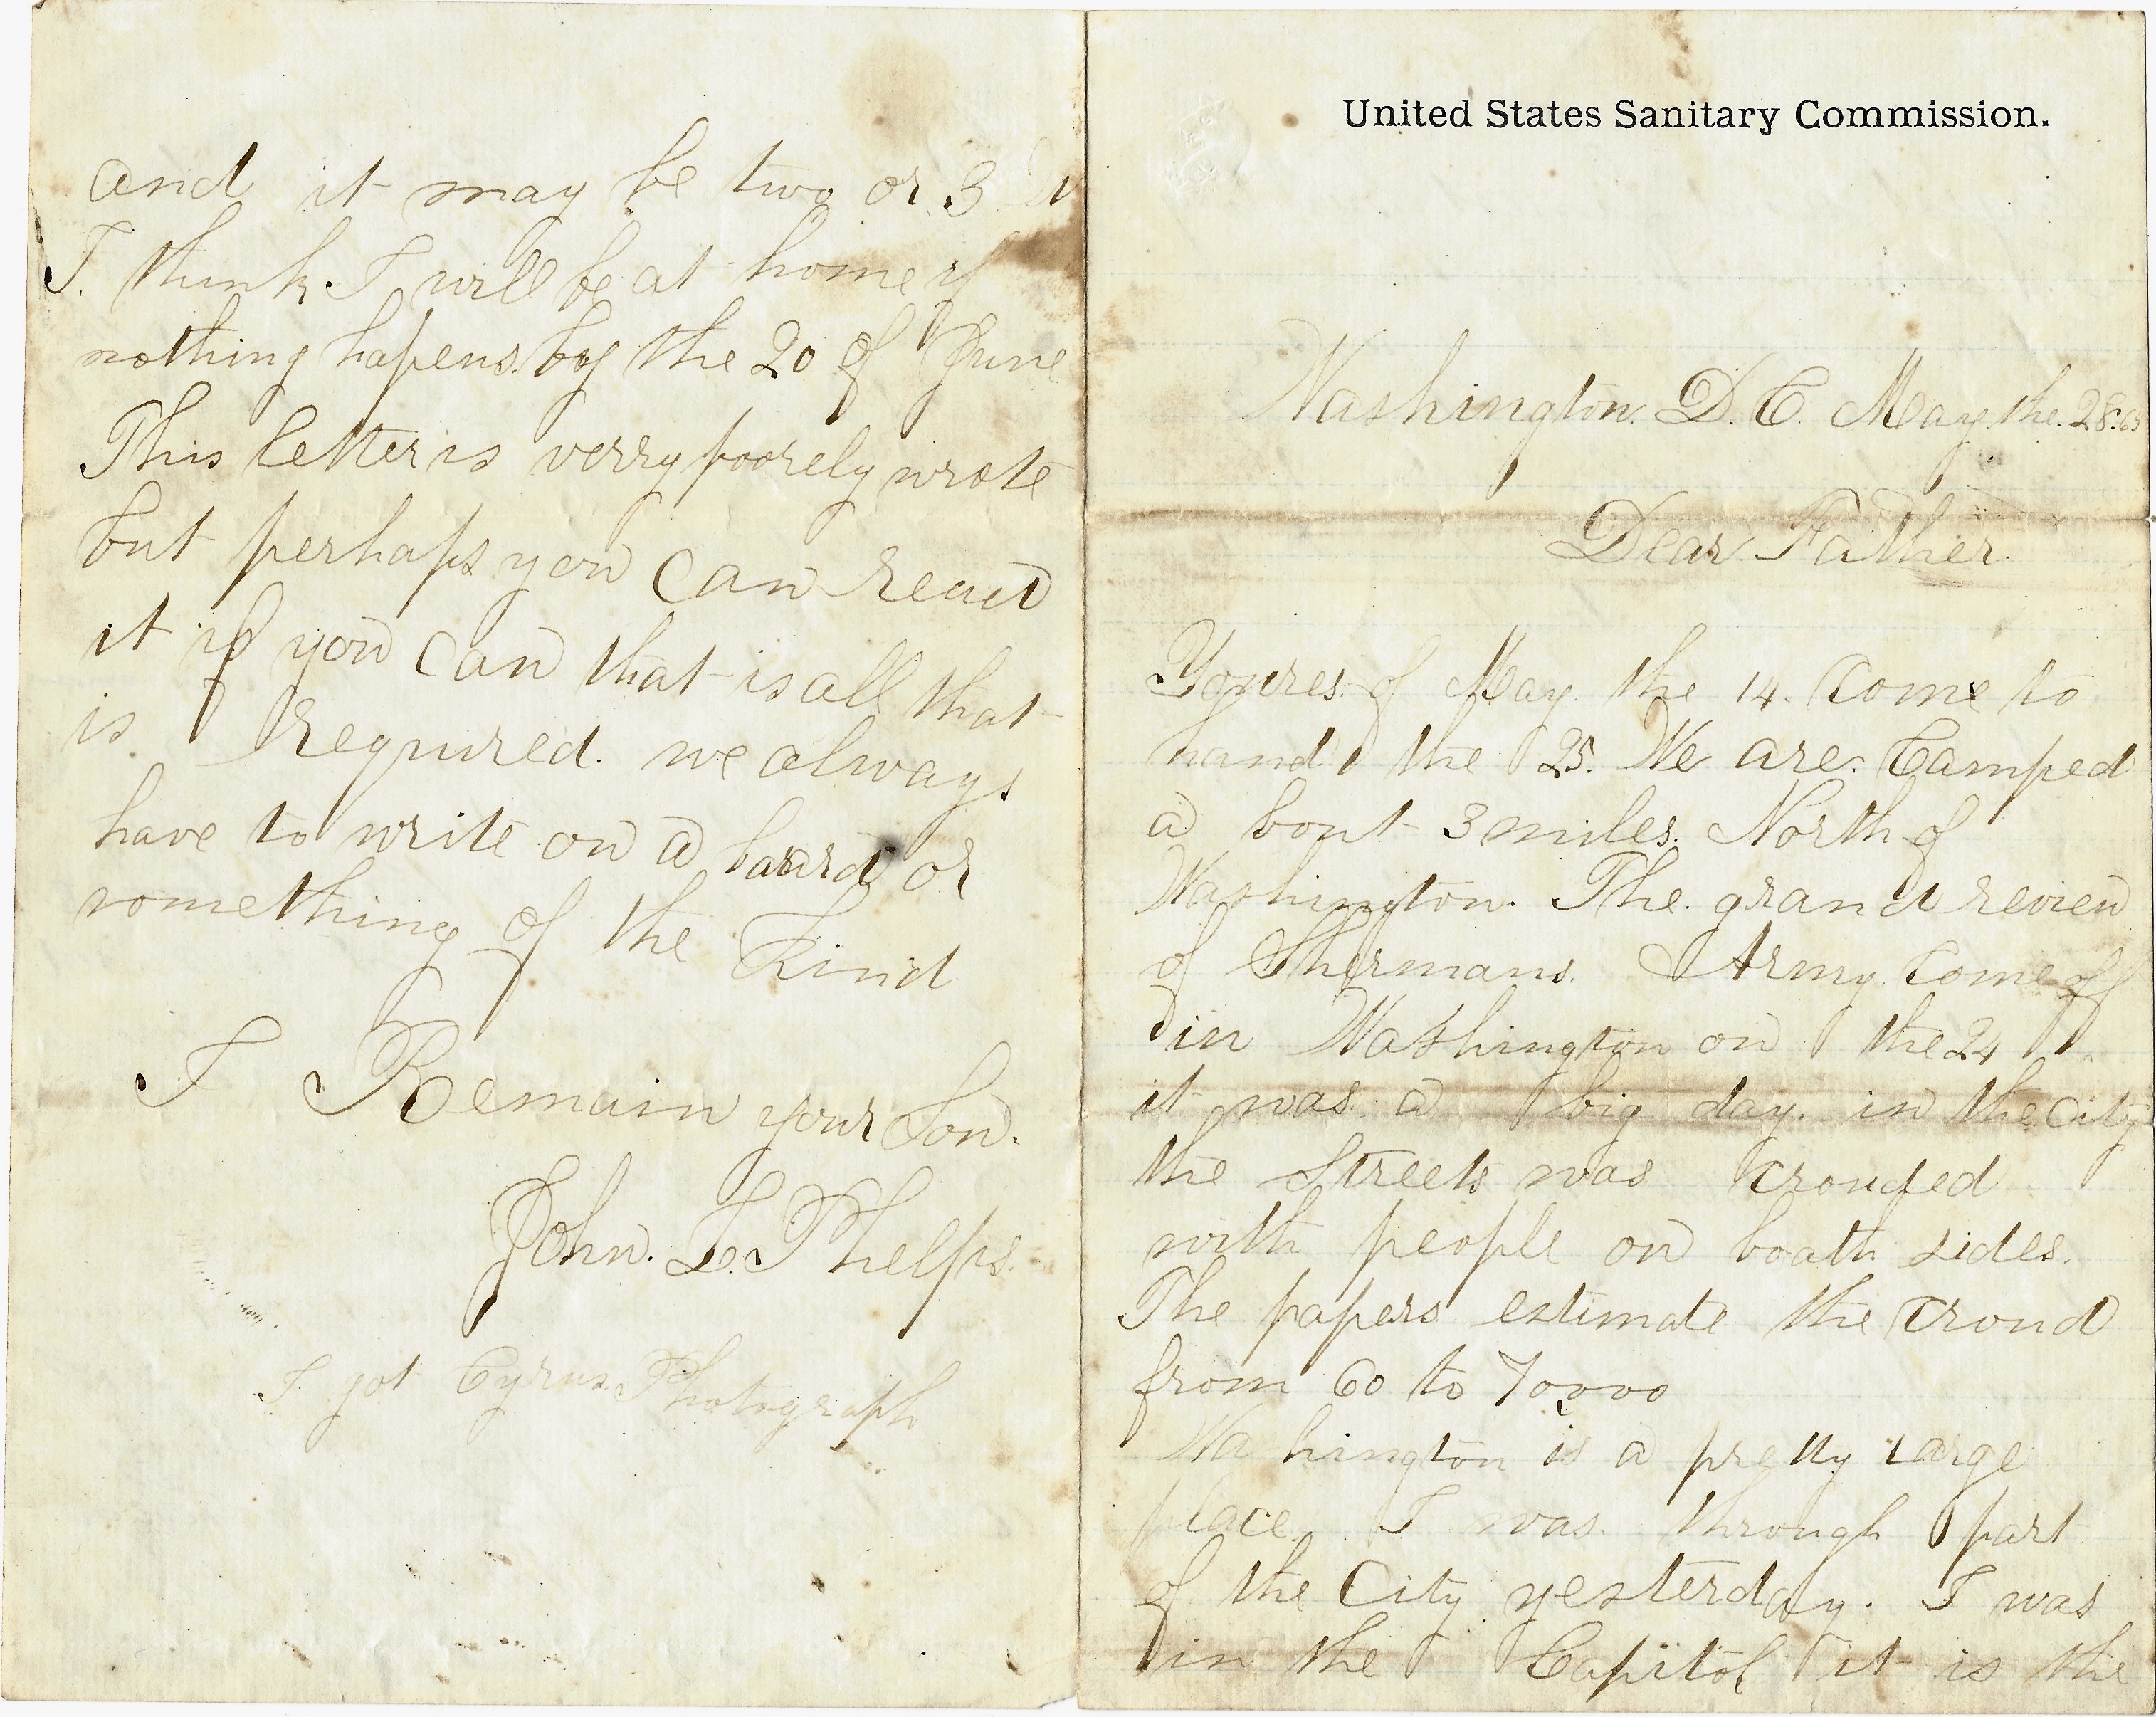 United States Sanitary Commission.
Washington. D. C. May the. 28. 65
Dear Father.
Youres of May. the 14. Come to
hand the 25. We are. Camped
a bout 3 miles. North of
Washington. The. grand review
of Shermans. Army. Come off
in Washington on the 24
it was a big day. in the City
the Streets was Crouded
with people on boath sides.
The papers estimate the Croud
from 60 to 70,000
Wa hington is a pretty large
place. I was. through part
of the City yesterday. I was
in the Capitol it is the
and it may be two or 3
I. think. I will be at home if
nothing hapens. by the 20 of June
This letter is verry poorely wrote
but perhaps you Can read
it if you Can that is all that
is required. we always
have to write on a board or
something of the Kind
I Remain your Son.
John. L. Phelps.
I got Cyrus. Photograph